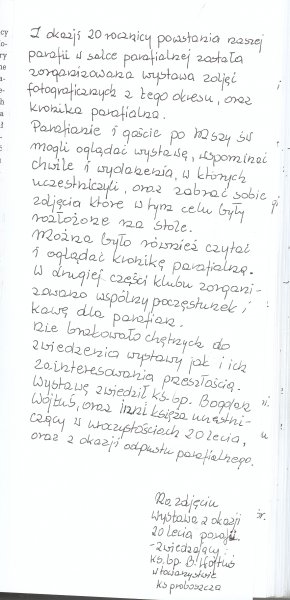 Z okazji 20 rocznicy powstania naszej
parafii w salce parafialnej została
zorganizowana wystawa zdjęć
fotograficznych z tego okresu, oraz
kronika parafialna.
Parafianie i goście po Mszy św
mogli oglądać wystawę, wspominać
chwile i wydarzenia, w których
uczestniczyli, oraz zabrać sobie
zdjęcia które w tym celu były
rozłożone na stole.
Można było również czytać
i oglądać kronikę parafialną.
W drugiej części klubu zorgani-
zowano wspólny poczęstunek i
kawę dla parafian.
Nie brakowało chętnych do
zwiedzenia wystawy jak i ich
zainteresowania przeszłością.
Wystawę zwiedził ks. bp. Bogdan
Wojtuś, oraz inni księża uczestni-
czący w uroczystościach 20 lecia,
oraz z okazji odpustu parafialnego.
Na zdjęciu
wystawa z okazji
20 lecia parafii.
- zwiedzający
ks. bp B. Wojtuś
w towarzystwie
ks proboszcza